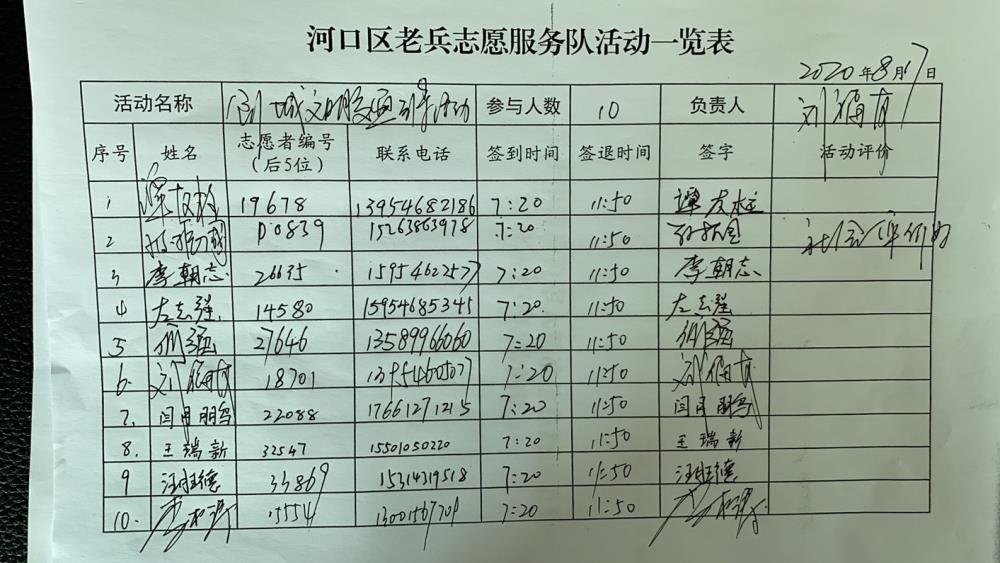 河口区老兵志愿服务队活动一览表
2020年8月17日
活动名称 创城文明 活动 参与人数 10 负责人 刘
序号 姓名 志愿者编号（后5位） 联系电话 签到时间 签退时间 签字 活动评价
1 19678 13954682186 7:20 11:50 谭友柱
2 D0839 15263863978 7:20 11:50
3 李朝志 26635 15954622577 7:20 11:50 李朝志
4 左志强 14580 15954685341 7:20 11:50 左志强
5 27646 13589966060 7:20 11:50
6 刘 18701 13954660507 7:20 11:50 刘
7 闫月鹏 22088 17661271215 7:20 11:50 闫月鹏
8 王瑞新 32547 15501050220 7:20 11:50 王瑞新
9 汪胜德 33869 15314319518 7:20 11:50 汪胜德
10 15554 7:20 11:50